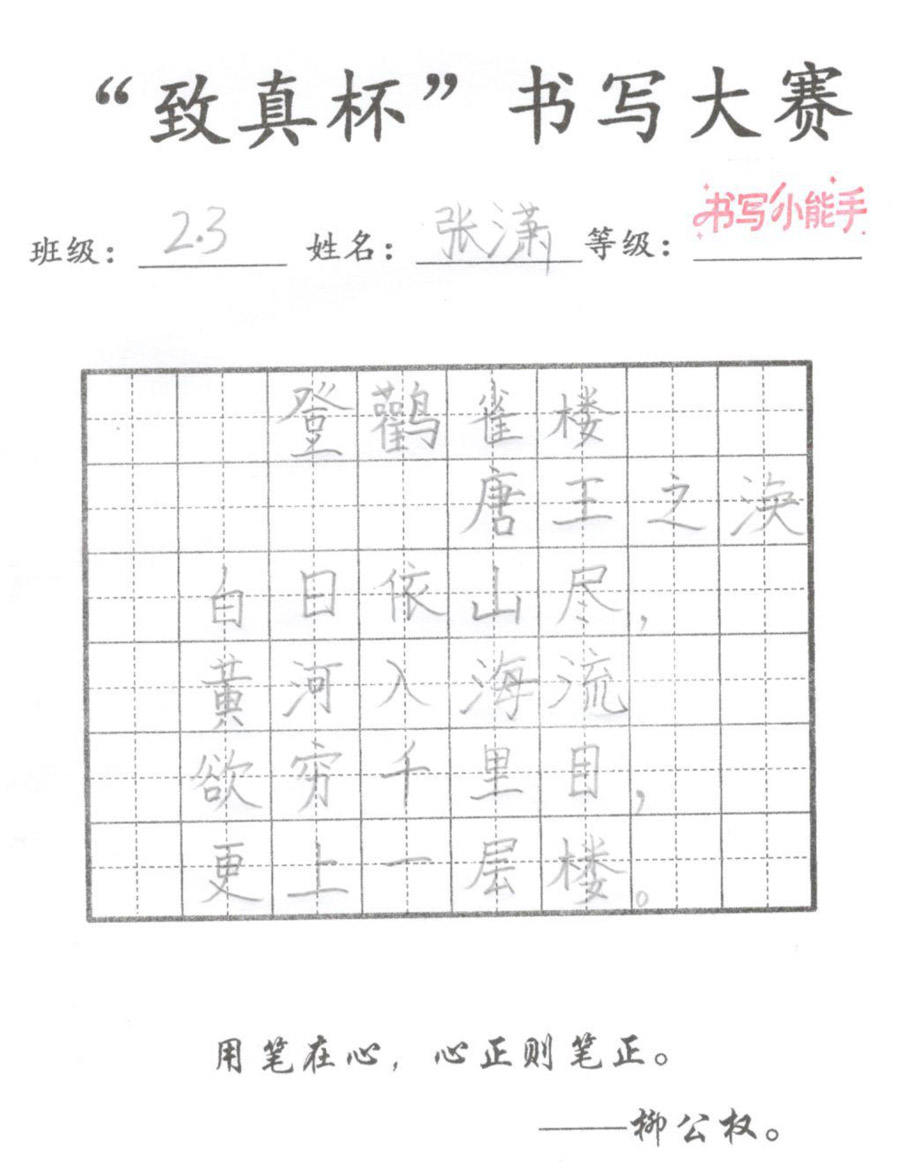 “致真杯”书写大赛
班级：2.3 姓名：张潇 等级：书写小能手
登鹳雀楼
唐王之涣
白日依山尽，
黄河入海流
欲穷千里目，
更上一层楼。
用笔在心，心正则笔正。
——柳公权。